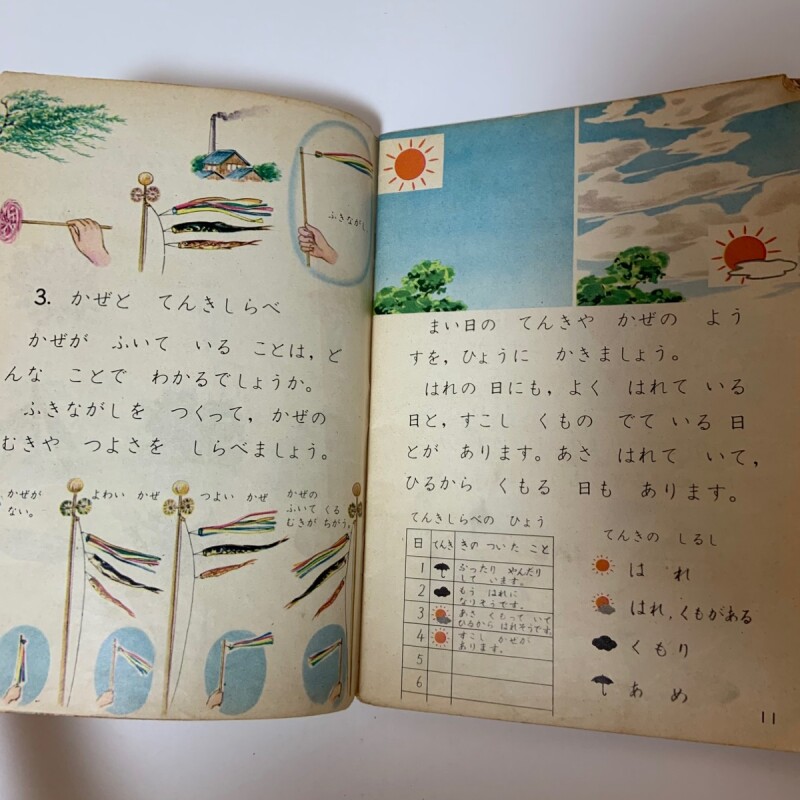 ふきながし
3. かぜと てんきしらべ
かぜが ふいて いる ことは, ど
んな ことで わかるでしょうか。
ふきながしを つくって, かぜの
むきや つよさを しらべましょう。
かぜが
ない。
よわい かぜ
つよい かぜ
かぜの
ふいて くる
むきが ちがう。
まい日の てんきや かぜの よう
すを, ひょうに かきましょう。
はれの 日にも, よく はれて いる
日と, すこし くもの でて いる 日
とが あります。あさ はれて いて,
ひるから くもる 日も あります。
てんきしらべの ひょう
日 てんき きの ついた こと
1 ふったり やんだり
して います。
2 もう はれに
なりそうです。
3 あさ くもって いて
ひるから はれそうです。
4 すこし かぜが
あります。
5
6
てんきの しるし
はれ
はれ, くもがある
くもり
あめ
11